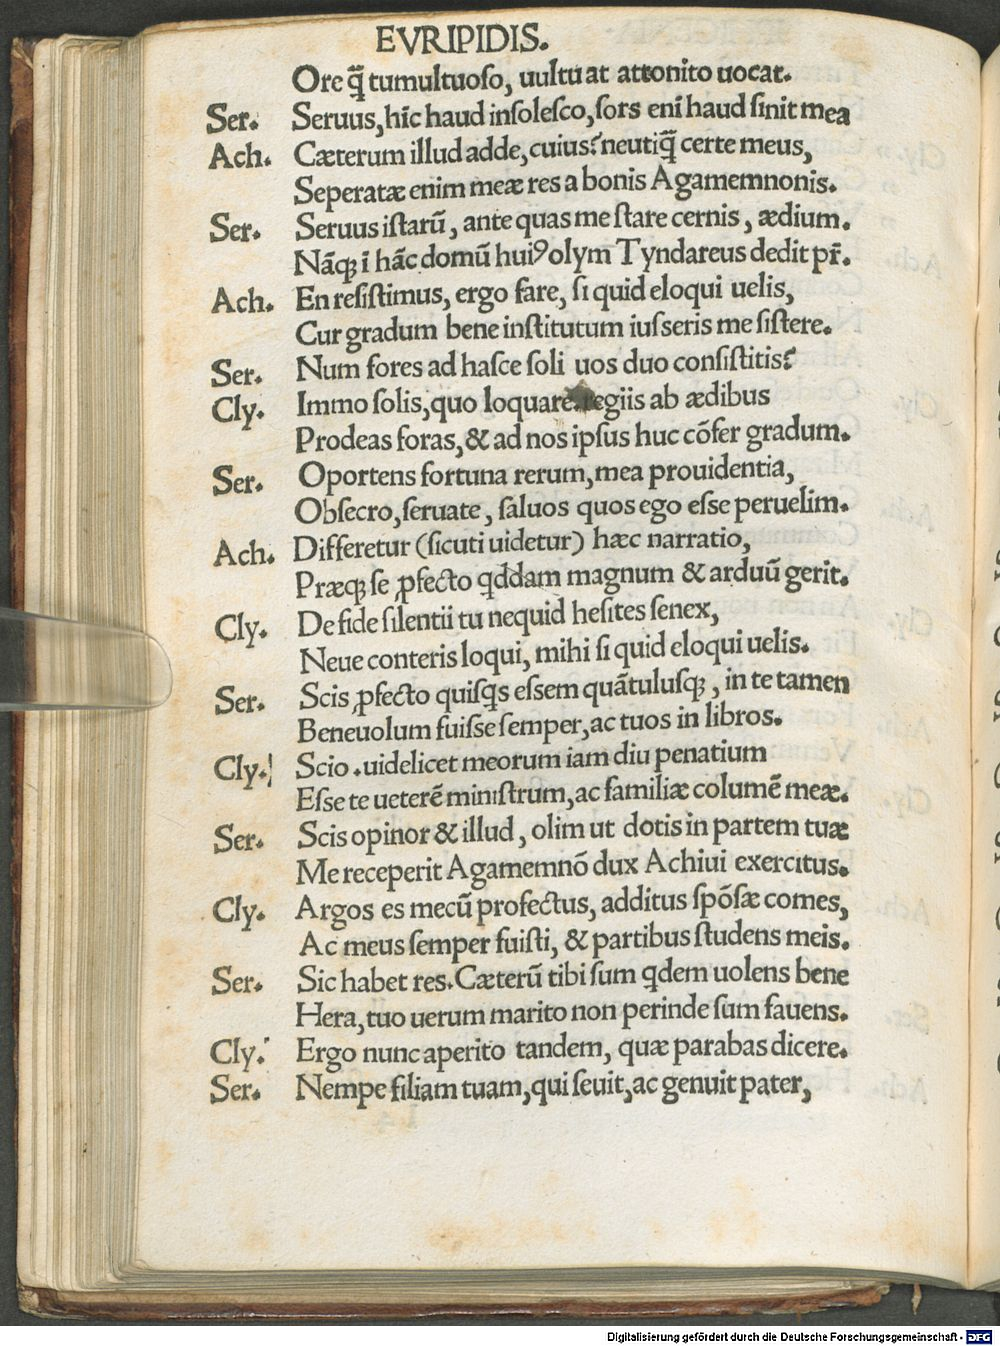 EVRIPIDIS.
Ore q̃ tumultuoso, uultu at attonito uocat.
Ser. Seruus, hĩc haud insolesco, sors enĩ haud sinit mea
Ach. Cæterum illud adde, cuius? neutiq̃ certe meus,
Seperatæ enim meæ res a bonis Agamemnonis.
Ser. Seruus istarũ, ante quas me stare cernis, ædium.
Nãqꝫ ĩ hãc domũ huiꝰ olym Tyndareus dedit pr̃.
Ach. En resistimus, ergo fare, si quid eloqui uelis,
Cur gradum bene institutum iusseris me sistere.
Ser. Num fores ad hasce soli uos duo consistitis?
Cly. Immo solis, quo loquare. regiis ab ædibus
Prodeas foras, & ad nos ipsus huc cõfer gradum.
Ser. Oportens fortuna rerum, mea prouidentia,
Obsecro, seruate, saluos quos ego esse peruelim.
Ach. Differetur (sicuti uidetur) hæc narratio,
Præqꝫ se ꝓfecto qddam magnum & arduũ gerit.
Cly. De fide silentii tu nequid hesites senex,
Neue conteris loqui, mihi si quid eloqui uelis.
Ser. Scis ꝓfecto quisq̃s essem quãtulusqꝫ, in te tamen
Beneuolum fuisse semper, ac tuos in libros.
Cly. Scio. uidelicet meorum iam diu penatium
Esse te ueterẽ ministrum, ac familiæ columẽ meæ.
Ser. Scis opinor & illud, olim ut dotis in partem tuæ
Me receperit Agamemnõ dux Achiui exercitus.
Cly. Argos es mecũ profectus, additus spõsæ comes,
Ac meus semper fuisti, & partibus studens meis.
Ser. Sic habet res. Cæterũ tibi sum qdem uolens bene
Hera, tuo uerum marito non perinde sum fauens.
Cly. Ergo nunc aperito tandem, quæ parabas dicere.
Ser. Nempe filiam tuam, qui seuit, ac genuit pater,
Digitalisierung gefördert durch die Deutsche Forschungsgemeinschaft - DFG